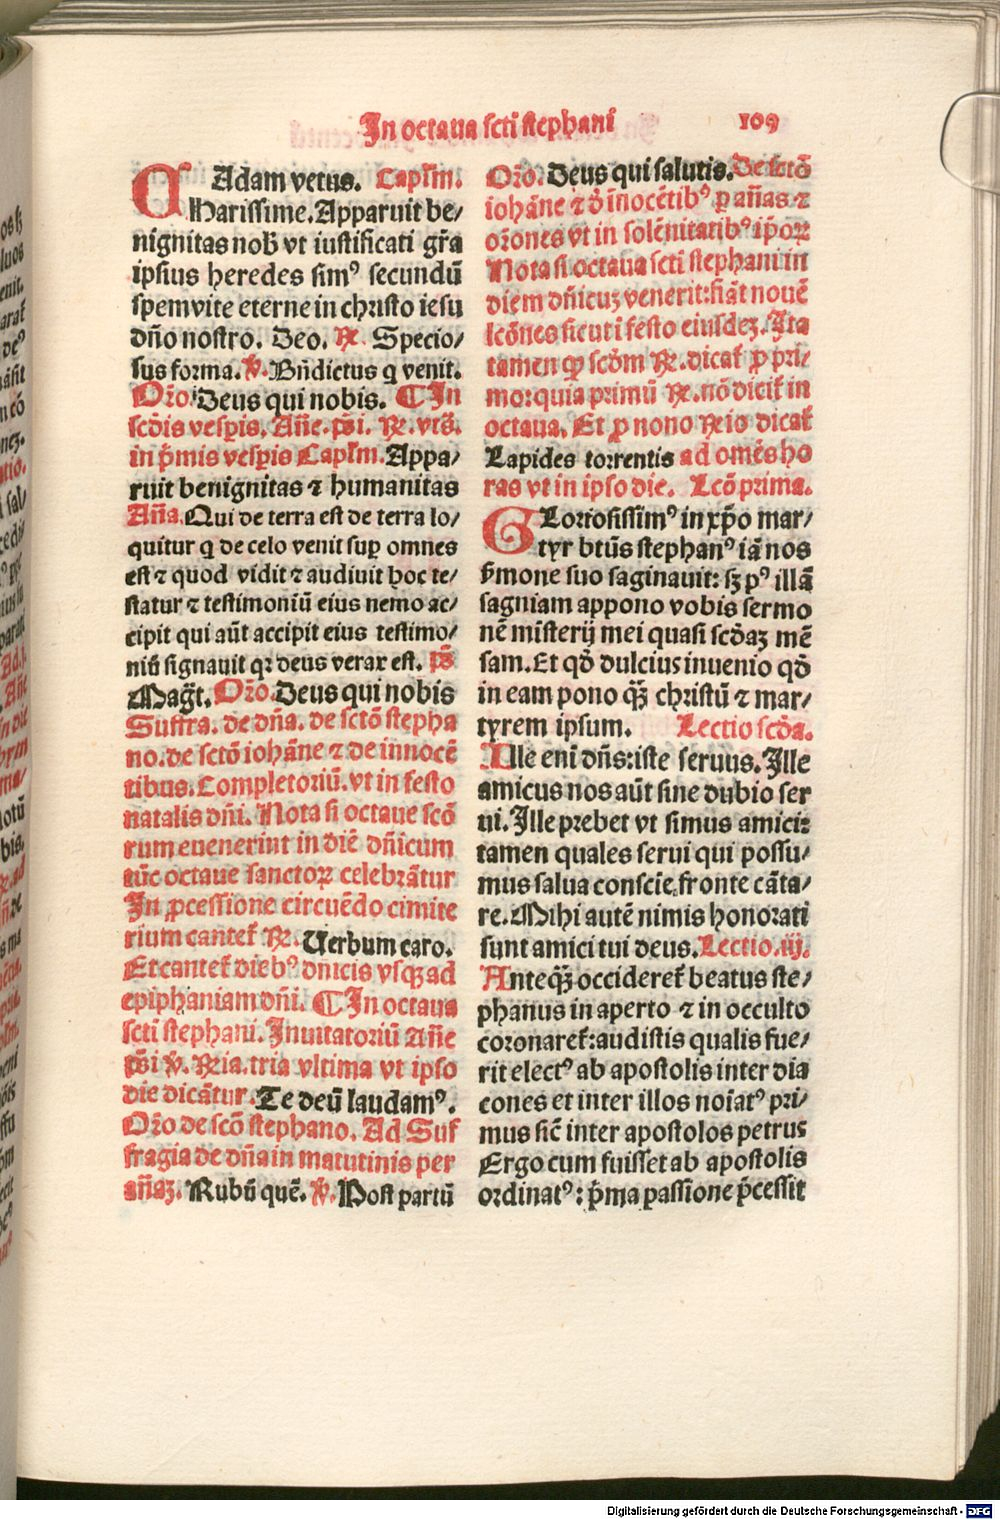 In octaua scti stephani 109
Adam vetus. Caplm.
Charissime. Apparuit be/
nignitas nob vt iustificati gr̄a
ipsius heredes simꝰ secundū
spem vite eterne in christo iesu
dn̄o nostro. Deo. ℟. Specio/
sus forma. ℣. Bn̄dictus q venit.
Or̄o. Deus qui nobis. ¶ In
scd̄is vesꝑis. An̄e. ps̄i. ℟. vrs̄.
in p̄mis vesꝑis Caplm. Appa/
ruit benignitas ⁊ humanitas
An̄a. Qui de terra est de terra lo/
quitur q de celo venit suꝑ omnes
est ⁊ quod vidit ⁊ audiuit hoc te/
statur ⁊ testimoniū eius nemo ac/
cipit qui aūt accipit eius testimo/
niū signauit qꝛ deus verax est. ps̄
Magt̄. Or̄o. Deus qui nobis
Suffra. de dn̄a. de sctō stepha
no. de sctō iohāne ⁊ de innocē
tibus. Completoriū. vt in festo
natalis dn̄i. Nota si octaue scō
rum euenerint in diē dn̄icum
tūc octaue sanctoꝝ celebrātur
In ꝓcessione circuēdo cimite
rium cantet̄ ℟. Uerbum caro.
Et cantet̄ diebꝰ dn̄icis vsqꝫ ad
epiphaniam dn̄i. ¶ In octaua
scti stephani. Inuitatoriū An̄e
ps̄i ℣. ℟ia. tria vltima vt ipso
die dicātur. Te deū laudamꝰ.
Or̄o de scō stephano. Ad Suf
fragia de dn̄a in matutinis per
an̄aꝫ. Rubū quē. ℣. Post partū
Or̄o. Deus qui salutis. De sctō
iohāne ⁊ d̄ īnocētibꝰ ꝑ an̄as ⁊
or̄ones vt in solēnitatibꝰ ip̄oꝝ
Nota si octaua scti stephani in
diem dn̄icuꝫ venerit: fiāt nouē
lcōnes sicuti festo eiusdeꝫ. Ita
tamen ꝙ scd̄m ℟. dicat̄ ꝓ pri/
mo: quia primū ℟. nō dicit̄ in
octaua. Et ꝓ nono ℟io dicat̄
Lapides torrentis ad omēs ho
ras vt in ipso die. Lcō prima.
Gloriosissimꝰ in xp̄o mar/
tyr btūs stephanꝰ iā nos
ẜmone suo saginauit: sꝫ pꝰ illā
sagniam appono vobis sermo
nē misterij mei quasi scd̄aꝫ mē
sam. Et qd̄ dulcius inuenio qd̄
in eam pono qꝫ̄ christū ⁊ mar/
tyrem ipsum. Lectio scd̄a.
Ille eni dn̄s: iste seruus. Ille
amicus nos aūt sine dubio ser
ui. Ille prebet vt simus amici:
tamen quales serui qui possu/
mus salua conscīe, fronte cāta/
re. Mihi autē nimis honorati
sunt amici tui deus. Lectio. iij.
Anteqꝫ̄ occideret̄ beatus ste/
phanus in aperto ⁊ in occulto
coronaret̄: audistis qualis fue/
rit electꝰ ab apostolis inter dia
cones et inter illos noīatꝰ pri/
mus sic̄ inter apostolos petrus
Ergo cum fuisset ab apostolis
ordinatꝰ: p̄ma passione p̄cessit
Digitalisierung gefördert durch die Deutsche Forschungsgemeinschaft - DFG